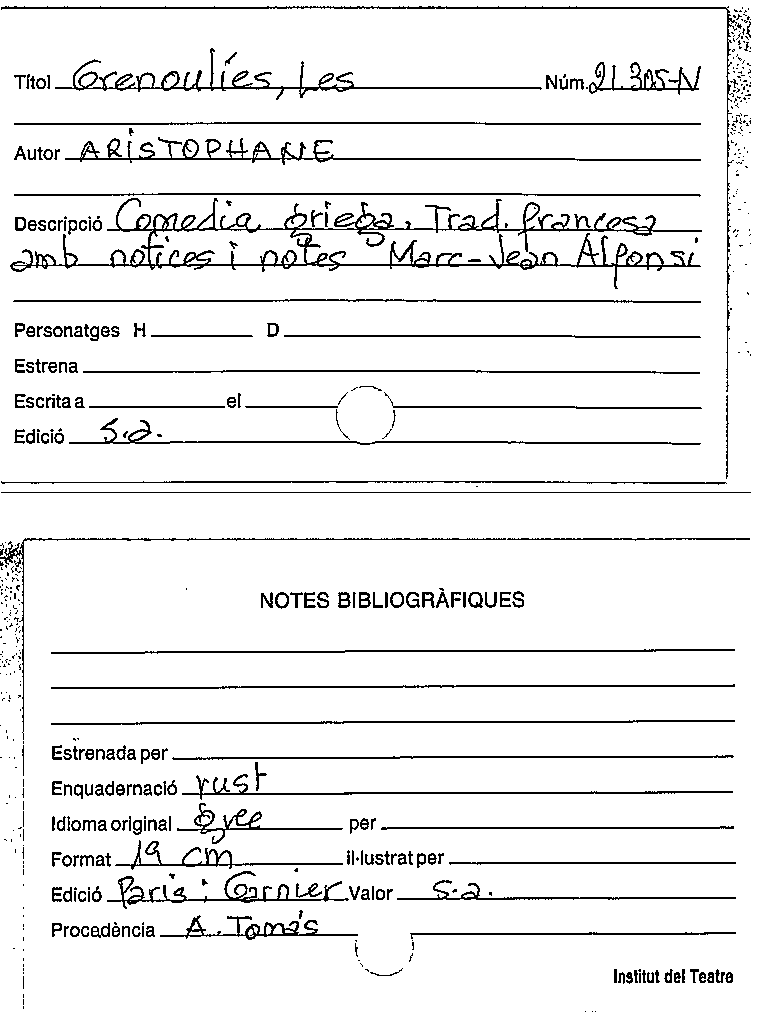 Títol Grenoulíes, Les Núm. 21.305-N
Autor ARISTOPHANE
Descripció Comedia griega. Trad. francesa
amb notices i notes Marc-Jean Alfonsi
Personatges H D
Estrena
Escrita a el
Edició s.a.
NOTES BIBLIOGRÀFIQUES
Estrenada per
Enquadernació rust
Idioma original grec per
Format 19 cm il·lustrat per
Edició Paris : Garnier Valor s.a.
Procedència A. Tomás
Institut del Teatre